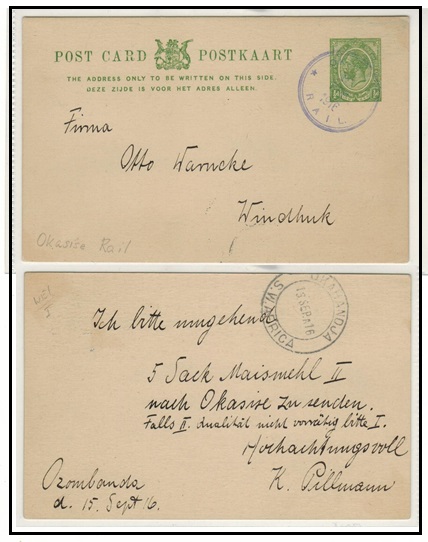 POST CARD POSTKAART
THE ADDRESS ONLY TO BE WRITTEN ON THIS SIDE.
DEZE ZIJDE IS VOOR HET ADRES ALLEEN.
RAIL
Firma
Otto Warncke
Windhuk
Okasise Rail
OKAHANDJA
S.W. AFRICA
15 SEP 16
Ich bitte umgehend
5 Sack Maismehl II
nach Okasise zu senden.
Falls II. Qualität nicht vorrätig bitte I.
Hochachtungsvoll
K. Pillmann
Ozombanda
d. 15. Sept 16.